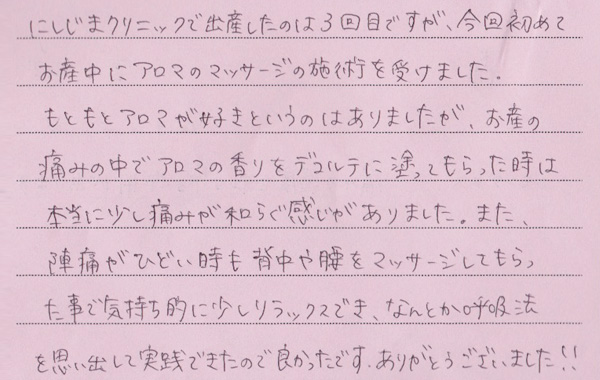 にしじまクリニックで出産したのは3回目ですが、今回初めて
お産中にアロマのマッサージの施術を受けました。
もともとアロマが好きというのはありましたが、お産の
痛みの中でアロマの香りをデコルテに塗ってもらった時は
本当に少し痛みが和らぐ感じがありました。また、
陣痛がひどい時も背中や腰をマッサージしてもらっ
た事で気持ち的に少しリラックスでき、なんとか呼吸法
を思い出して実践できたので良かったです。ありがとうございました!!